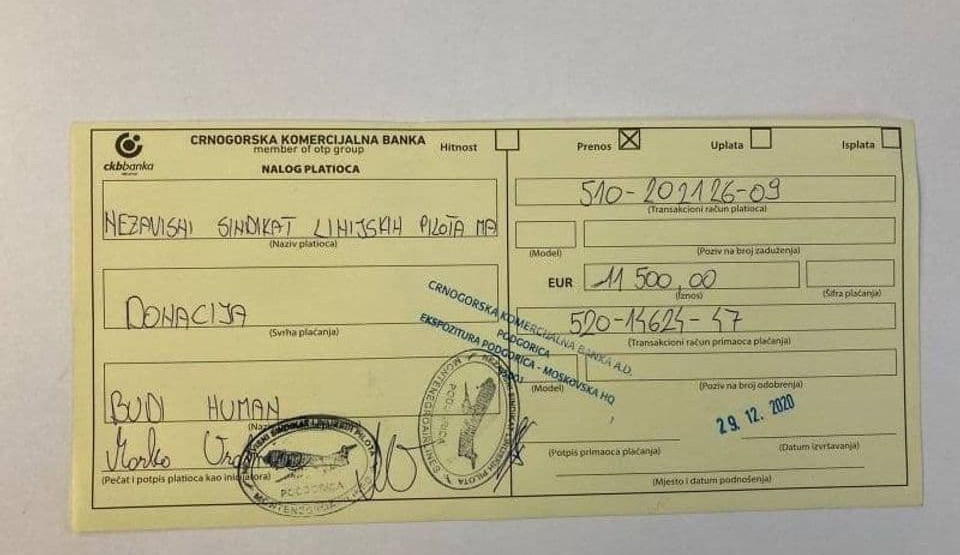 ckbbanka
CRNOGORSKA KOMERCIJALNA BANKA
member of otp group
NALOG PLATIOCA
Hitnost
NEZAVISNI SINDIKAT LINIJSKIH PILOTA MA
(Naziv platioca)
DONACIJA
(Svrha plaćanja)
BUDI HUMAN
Marko
(Pečat i potpis platioca kao inicijatora)
NEZAVISNI SINDIKAT LINIJSKIH PILOTA
PODGORICA
Prenos
Uplata
Isplata
510-202126-09
(Transakcioni račun platioca)
(Model)
(Poziv na broj zaduženja)
EUR
11 500,00
(Iznos)
(Šifra plaćanja)
520-14624-47
(Transakcioni račun primaoca plaćanja)
(Model)
(Poziv na broj odobrenja)
CRNOGORSKA KOMERCIJALNA BANKA A.D.
PODGORICA
EKSPOZITURA PODGORICA - MOSKOVSKA HQ
MONTENEGROAIRLINES
PODGORICA
29. 12. 2020
(Potpis primaoca plaćanja)
(Datum izvršavanja)
(Mjesto i datum podnošenja)